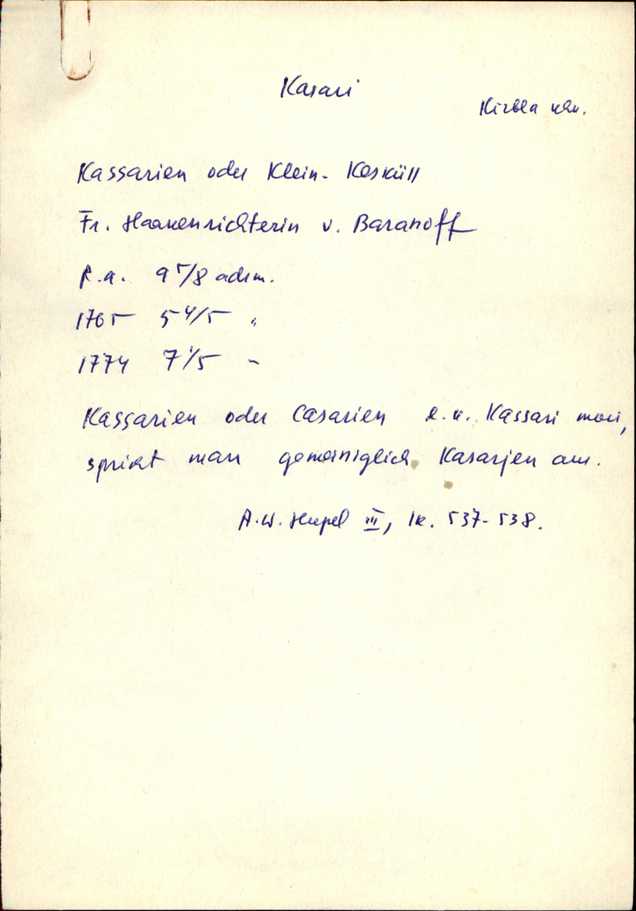 Kasari
Kirbla khk.
Kassarien oder Klein-Keskull
Fr. Haakenrichterin v. Baranoff
R.a. 9 5/8 adrm.
1765 5 4/5 "
1774 7 1/5 "
Kassarien oder Casarien e.n. Kassari mois,
spricht man gemeiniglich Kasarjen aus.
A.W. Hupel III, lk. 537-538.